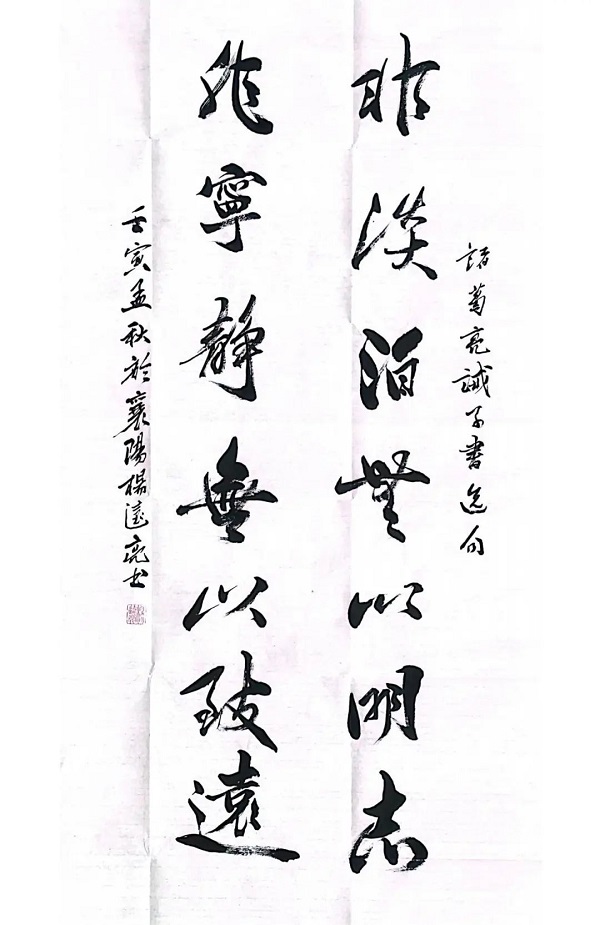 諸葛亮誡子書選句
非淡泊無以明志
非寧靜無以致遠
壬寅孟秋於襄陽楊遠亮書